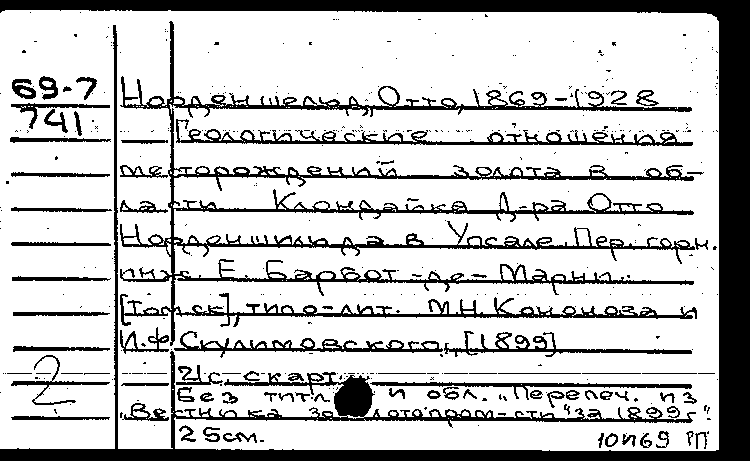 69-7
741
Норденшельд, Отто, 1869-1928
Геологические отношения
месторождений золота в об-
ласти Клондайка Д-ра Отто
Норденшильда в Упсале. Пер. горн.
инж. Е. Барбот-де-Марни.
[Томск], типо-лит. М.Н. Кононова и
И.Ф. Скулимовского, [1899]
21 с. с карт.
2
Без титл. и обл. "Перепеч. из
"Вестника золотопром-сти" за 1899 г."
25 см.
10 и 69 РП